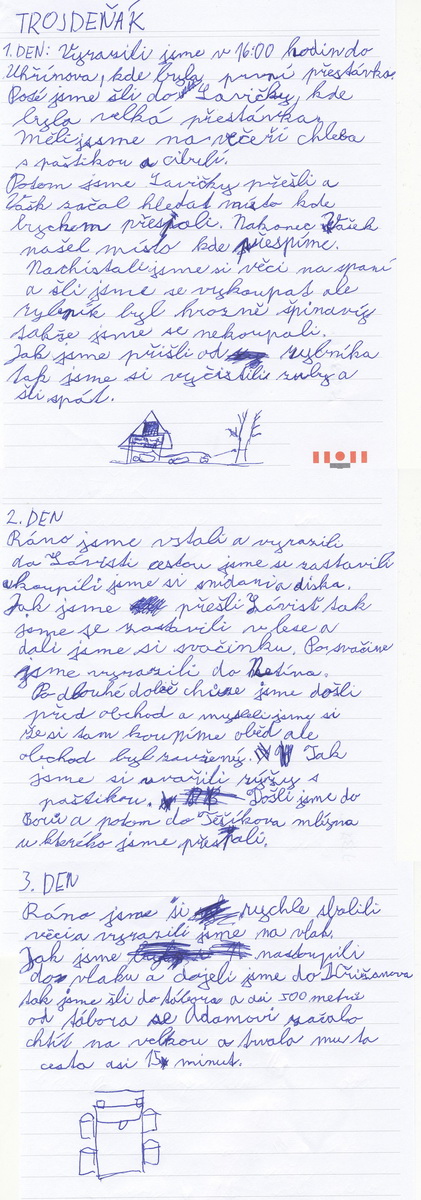 TROJDEŇÁK
1. DEN: Vyrazili jsme v 16:00 hodin do
Uhřínova, kde byla první přestávka.
Poté jsme šli do Lavičky, kde
byla velká přestávka.
Měli jsme na večeři chleba
s paštikou a cibulí.
Potom jsme Lavičky přešli a
Vašek začal hledat místo kde
bychem přespali. Nakonec Vašek
našel místo kde přespíme.
Nachistali jsme si věci na spaní
a šli jsme se vykoupat ale
rybník byl hrozně špinavý
takže jsme se nekoupali.
Jak jsme přišli od rybníka
tak jsme si vyčistili zuby a
šli spát.
2. DEN
Ráno jsme vstali a vyrazili
do Závisti cestou jsme se zastavili
koupili jsme si snídani a
Jak jsme přešli Závist tak
jsme se zastavili v lese a
dali jsme si svačinku. Po svačině
jsme vyrazili do Netína.
Po dlouhé době chůze jsme došli
před obchod a mysleli jsme si
že si tam koupíme oběd ale
obchod byl zavřený. Tak
jsme si uvařili rýži s
paštikou. Došli jsme do
Borů a potom do mlýna
u kterého jsme přespali.
3. DEN
Ráno jsme si rychle sbalili
věci a vyrazili jsme na vlak.
Jak jsme nastoupili
do vlaku a dojeli jsme do Křižanova
tak jsme šli do tábora a asi 500 metrů
od tábora se Adamovi začalo
chtít na velkou a trvala mu ta
cesta asi 15 minut.